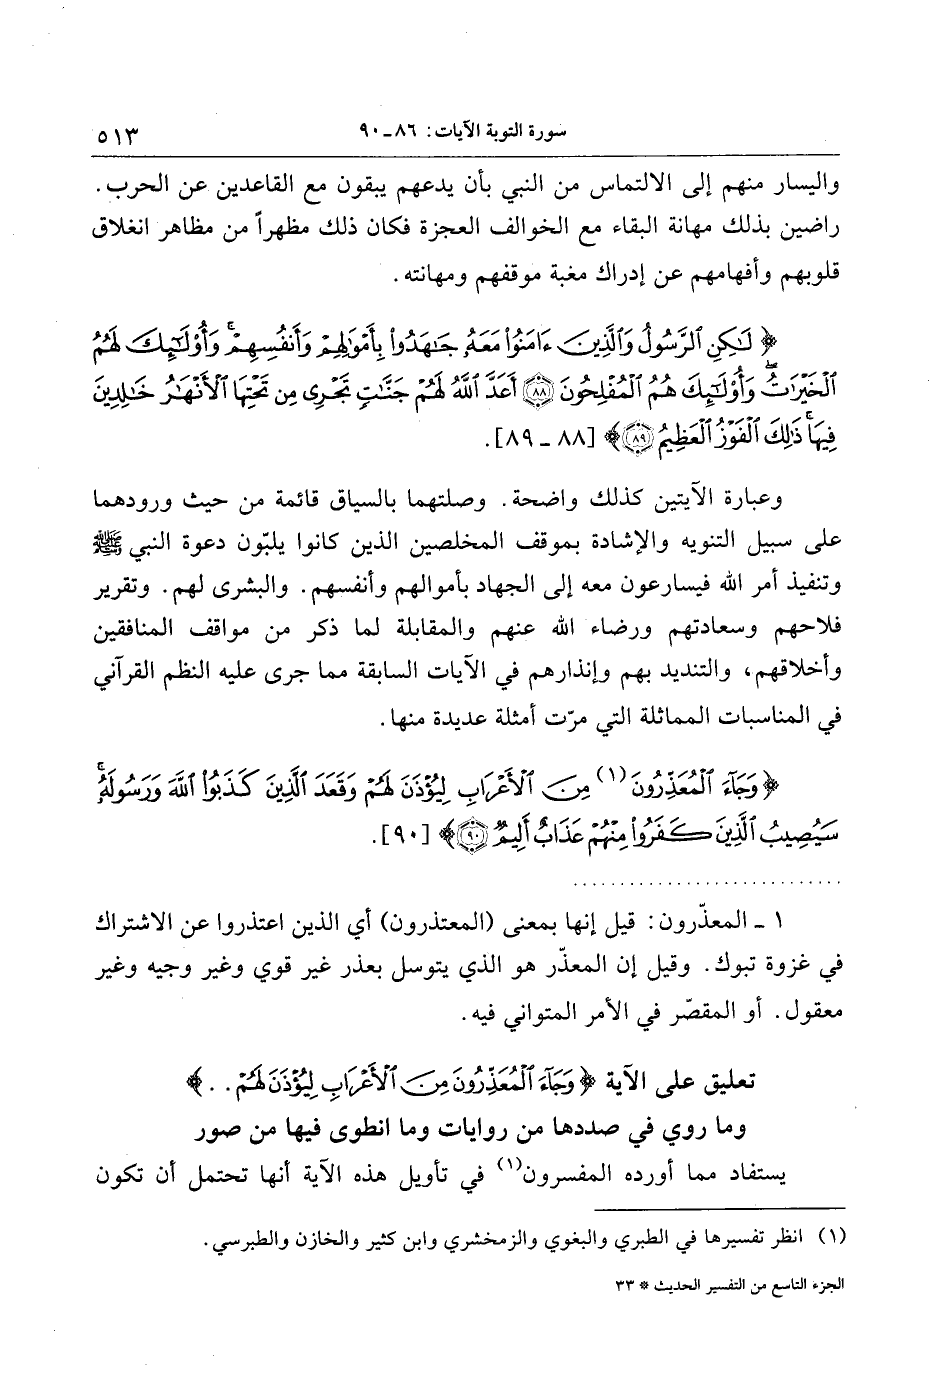 سورة التوبة الآيات: ٨٦ـ٩٠ ٥١٣
واليسار منهم إلى الالتماس من النبي بأن يدعهم يبقون مع القاعدين عن الحرب.
راضين بذلك مهانة البقاء مع الخوالف العجزة فكان ذلك مظهراً من مظاهر انغلاق
قلوبهم وأفهامهم عن إدراك مغبة موقفهم ومهانته.
﴿ لَٰكِنِ الرَّسُولُ وَالَّذِينَ ءَامَنُوا مَعَهُ جَٰهَدُوا بِأَمْوَٰلِهِمْ وَأَنفُسِهِمْ ۚ وَأُو۟لَٰٓئِكَ لَهُمُ
الْخَيْرَٰتُ ۖ وَأُو۟لَٰٓئِكَ هُمُ الْمُفْلِحُونَ ٨٨ أَعَدَّ اللَّهُ لَهُمْ جَنَّٰتٍ تَجْرِى مِن تَحْتِهَا الْأَنْهَٰرُ خَٰلِدِينَ
فِيهَا ۚ ذَٰلِكَ الْفَوْزُ الْعَظِيمُ ٨٩﴾ [٨٨ ـ ٨٩].
وعبارة الآيتين كذلك واضحة. وصلتهما بالسياق قائمة من حيث ورودهما
على سبيل التنويه والإشادة بموقف المخلصين الذين كانوا يلبّون دعوة النبي ﷺ
وتنفيذ أمر الله فيسارعون معه إلى الجهاد بأموالهم وأنفسهم. والبشرى لهم. وتقرير
فلاحهم وسعادتهم ورضاء الله عنهم والمقابلة لما ذكر من مواقف المنافقين
وأخلاقهم، والتنديد بهم وإنذارهم في الآيات السابقة مما جرى عليه النظم القرآني
في المناسبات المماثلة التي مرّت أمثلة عديدة منها.
﴿ وَجَآءَ الْمُعَذِّرُونَ(١) مِنَ الْأَعْرَابِ لِيُؤْذَنَ لَهُمْ وَقَعَدَ الَّذِينَ كَذَبُوا اللَّهَ وَرَسُولَهُ ۚ
سَيُصِيبُ الَّذِينَ كَفَرُوا مِنْهُمْ عَذَابٌ أَلِيمٌ ٩٠﴾ [٩٠].
............................
١ ـ المعذّرون: قيل إنها بمعنى (المعتذرون) أي الذين اعتذروا عن الاشتراك
في غزوة تبوك. وقيل إن المعذّر هو الذي يتوسل بعذر غير قوي وغير وجيه وغير
معقول. أو المقصّر في الأمر المتواني فيه.
تعليق على الآية ﴿ وَجَآءَ الْمُعَذِّرُونَ مِنَ الْأَعْرَابِ لِيُؤْذَنَ لَهُمْ . . ﴾
وما روي في صددها من روايات وما انطوى فيها من صور
يستفاد مما أورده المفسرون(١) في تأويل هذه الآية أنها تحتمل أن تكون
(١) انظر تفسيرها في الطبري والبغوي والزمخشري وابن كثير والخازن والطبرسي.
الجزء التاسع من التفسير الحديث * ٣٣